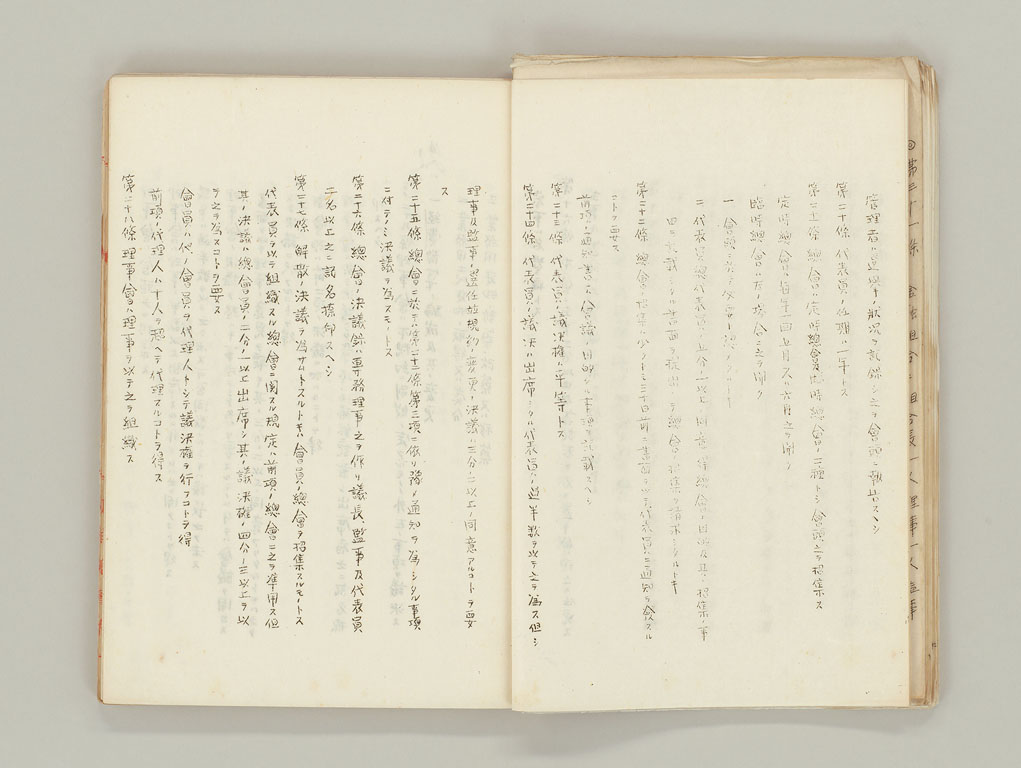 管理者ハ選擧ノ狀況ヲ記錄シ之ヲ會頭ニ報告スヘシ
第二十條 代表員ノ任期ハ一年トス
第二十一條 總會ハ定時總會及臨時總會ノ二種トシ會頭之ヲ招集ス
定時總會ハ每年四月又ハ六月之ヲ開ク
臨時總會ハ左ノ場合ニ之ヲ開ク
一 會頭ニ於テ必要ト認メタルトキ
二 代表員カ總代表員ノ五分ノ一以上ノ同意ヲ得總會ノ目的及其ノ招集ノ事
由ヲ記載シタル書面ヲ提出シテ總會ノ招集ヲ請求シタルトキ
第二十二條 總會ノ招集ハ少クトモ三日前ニ書面ヲ以テ代表員ニ通知ヲ發スル
コトヲ要ス
前項ノ通知書ニハ會議ノ目的タル事項ヲ記載スヘシ
第二十三條 代表員ノ議決權ハ平等トス
第二十四條 代表員ノ議決ハ出席シタル代表員ノ過半數ヲ以テ之ヲ爲ス但シ
理事及監事ノ選任竝規約ノ變更ノ決議ハ三分ノ二以上ノ同意アルコトヲ要
ス
第二十五條 總會ニ於テハ第二十二條第二項ニ依リ豫メ通知ヲ爲シタル事項
ニ付テノミ決議ヲ爲スモノトス
第二十六條 總會ノ決議錄ハ專務理事之ヲ作リ議長、監事及代表員
二名以上之ニ記名捺印スヘシ
第二十七條 解散ノ決議ヲ爲サムトスルトキハ會員ノ總會ヲ招集スルモノトス
代表員ヲ以テ組織スル總會ニ關スル規定ハ前項ノ總會ニ之ヲ準用ス但
其ノ決議ハ總會員ノ二分ノ一以上出席シ其ノ議決權ノ四分ノ三以上ヲ以
テ之ヲ爲スコトヲ要ス
會員ハ他ノ會員ヲ代理人トシテ議決權ヲ行フコトヲ得
前項ノ代理人ハ十人ヲ超ヘテ代理スルコトヲ得ス
第二十八條 理事會ハ理事ヲ以テ之ヲ組織ス